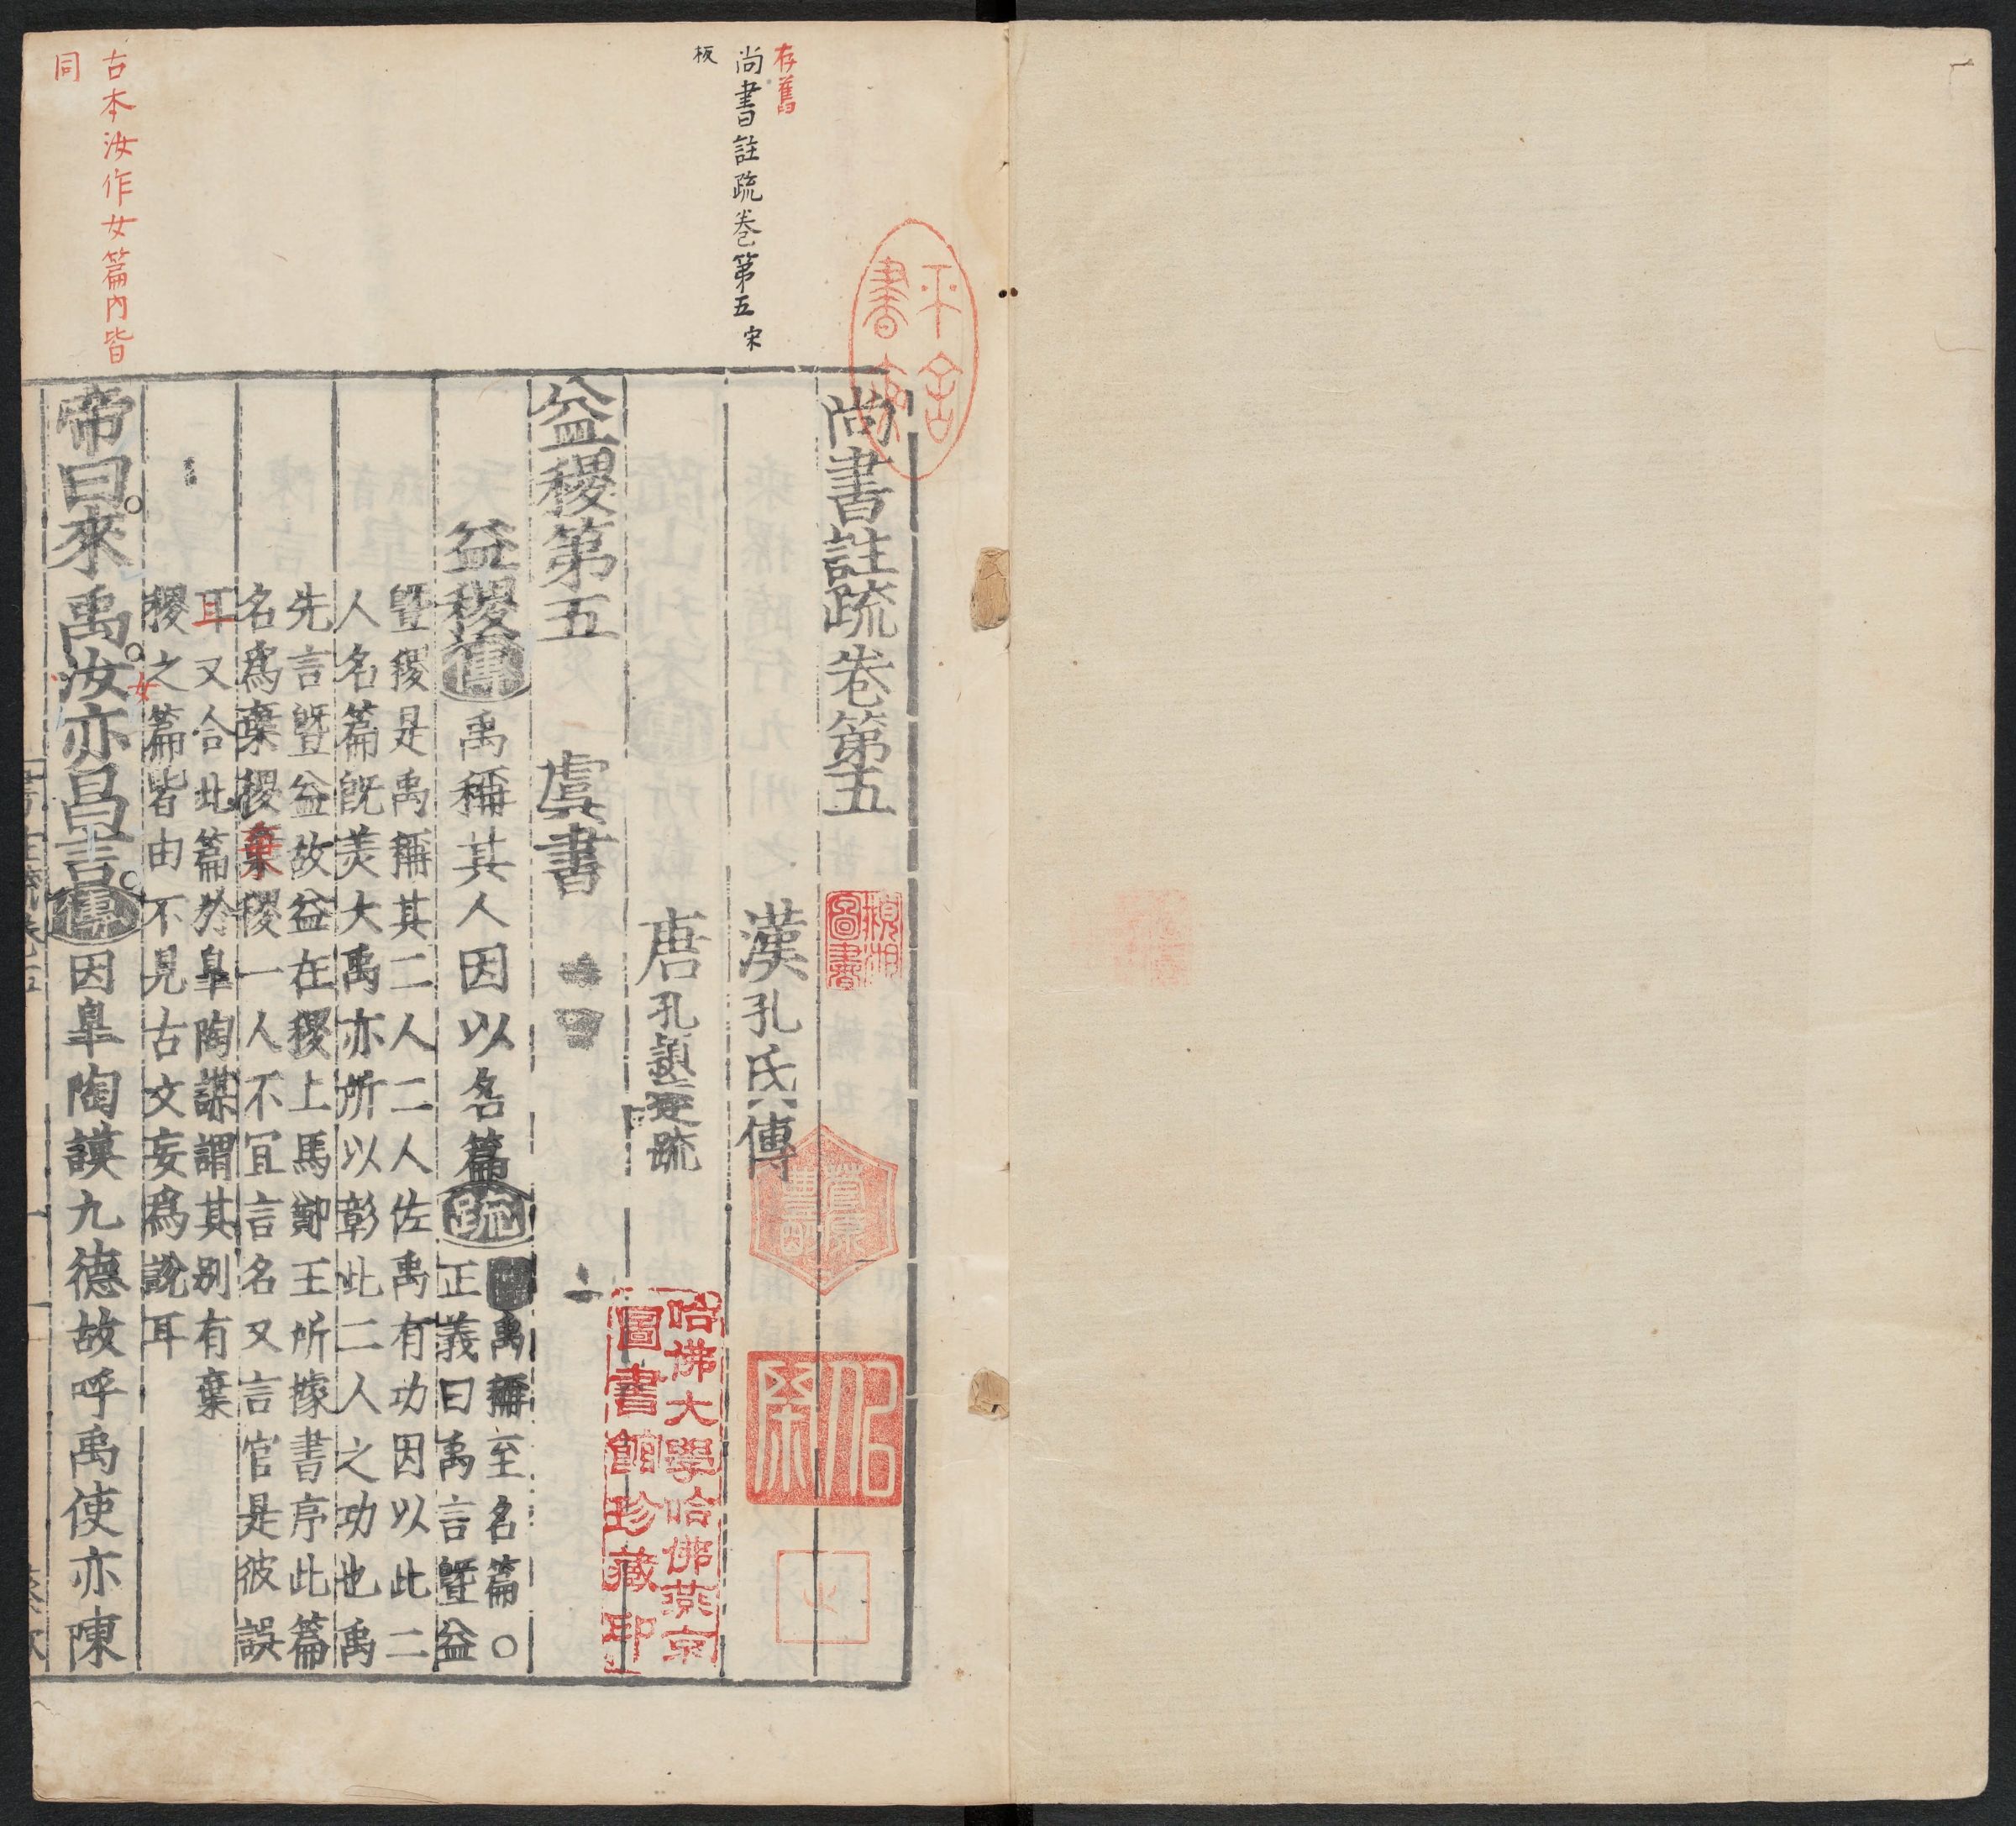 存舊
尚書註疏卷第五宋
板
古本汝作女篇内皆
同
尚書註疏卷第五
漢孔氏傳
唐孔穎達疏
益稷第五 虞書
益稷傳禹稱其人因以名篇疏
禹稱至名篇○
正義曰禹言曁益
曁稷是禹稱其二人二人佐禹有功因以此二
人名篇旣美大禹亦所以彰此二人之功也禹
先言曁益故益在稷上馬鄭王所據書序此篇
名爲棄稷棄稷一人不宜言名又言官是彼誤
耳又合此篇於臯陶謨謂其別有棄
稷之篇皆由不見古文妄爲說耳
帝曰來禹汝亦昌言傳因臯陶謨九德故呼禹使亦陳
女
圖書
哈佛大學哈佛燕京
圖書館珍藏印